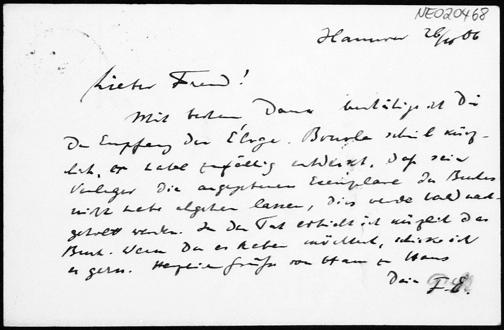 NE020468
Hannover 26/IV 06
Lieber Freund!
Mit bestem Dank bestätige ich Dir
den Empfang der Eloge. schrieb kürz-
lich, er habe zufällig entdeckt, daß sein
Verleger die angegebenen Exemplare des Buches
nicht habe abgehen lassen, dies werde bald nach-
geholt werden. In der Tat erhielt ich kürzlich das
Buch. Wenn Du es haben möchtest, schicke ich
es gern. Herzliche Grüße von Haus zu Haus
Dein F. E.